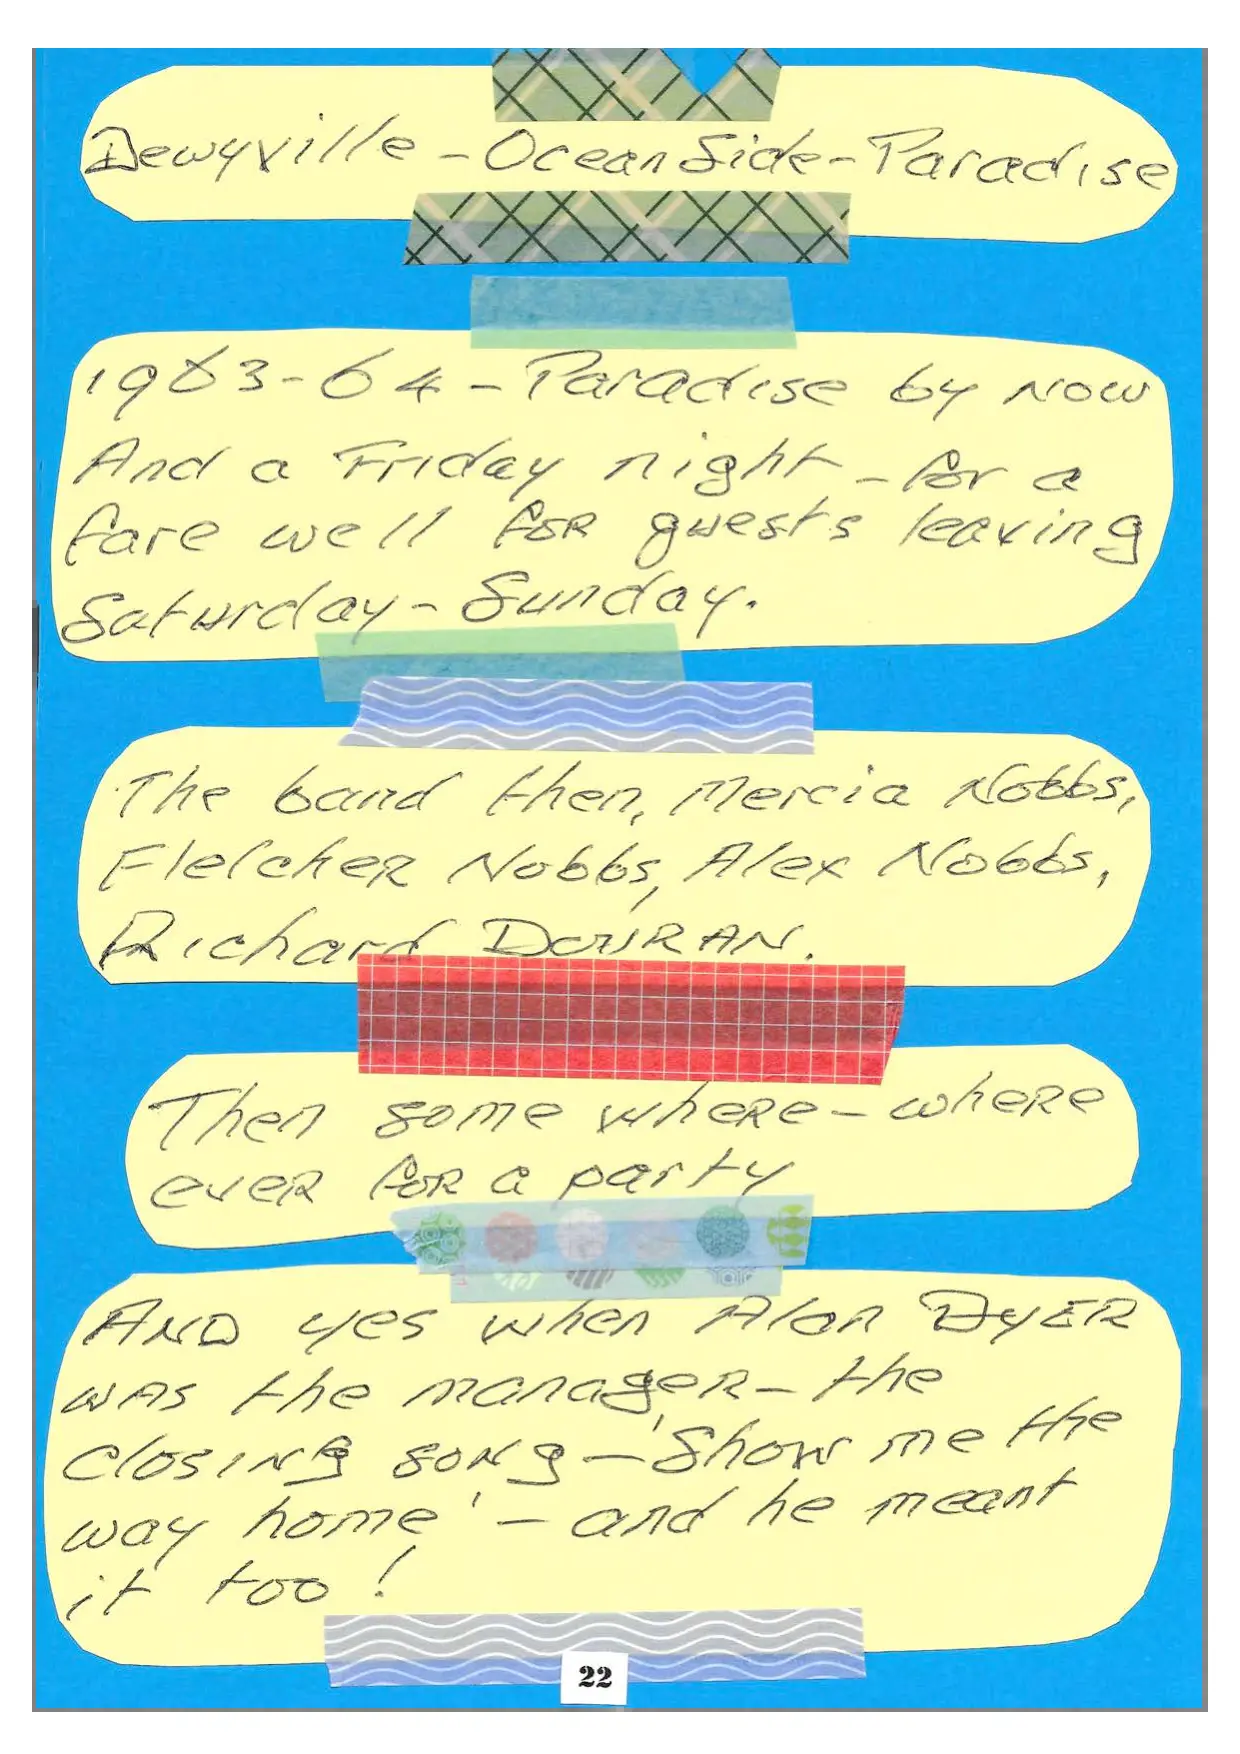 Dewyville - Ocean Side - Paradise
1963-64 - Paradise by now
And a Friday night - for a
fare well for guests leaving
Saturday - Sunday.
The band then, Mercia Nobbs,
Fletcher Nobbs, Alex Nobbs,
Richard DOURAN.
Then some where - where
ever for a party
AND yes when Alan DyER
was the manager - the
closing song - 'Show me the
way home' - and he meant
it too!
22